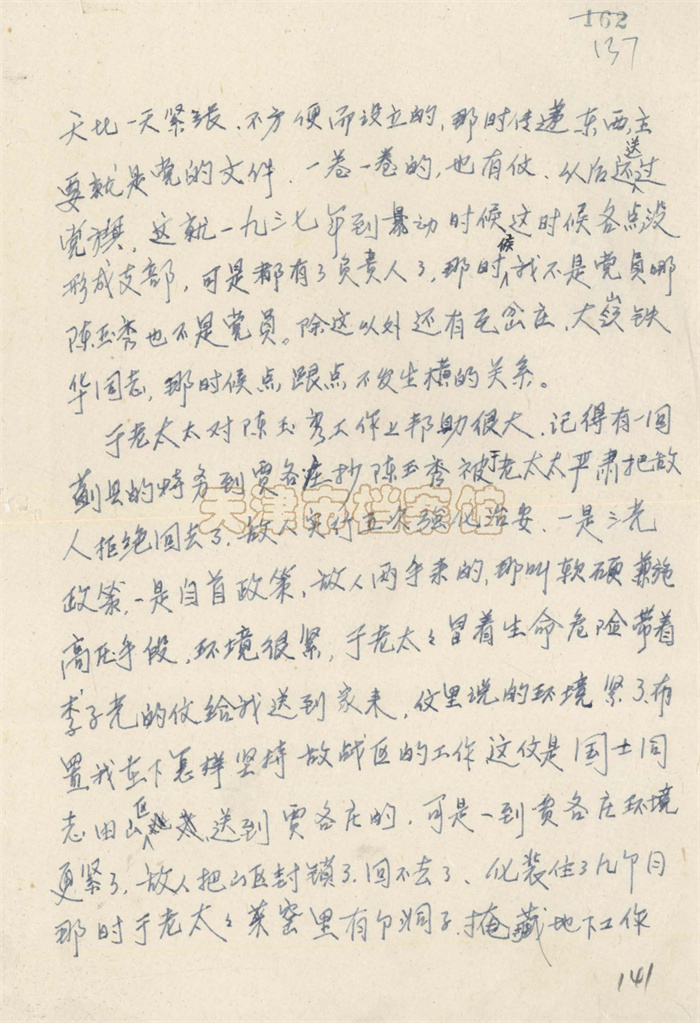 162
137
天比一天紧张、不方便而设立的,那时传递东西,主
要就是党的文件、一卷一卷的,也有仗、从后还送过
党旗,这就一九三七年到暴动时候这时候各点没
形成支部,可是都有了负责人了,那时候我不是党员哪
陈玉秀也不是党员。除这以外还有毛岔庄、大岭铁
华同志,那时候点跟点不发生横的关系。
于老太太对陈玉秀工作上邦助很大、记得有一回
蓟县的特务到贾各庄抄陈玉秀被于老太太严肃把敌
人拒绝回去了、敌人实行五次强化治安、一是三光
政策,一是自首政策,敌人两手来的,那叫软硕兼施
高压手段,环境很紧,于老太々冒着生命危险带着
李子光的仗给我送到家来,仗里说的环境紧了、布
置我在下怎样坚持敌战区的工作这仗是国士同
志由山区送到贾各庄的,可是一到贾各庄环境
更紧了,敌人把山区封锁了、回不去了、化装住了几个月
那时于老太々菜窑里有个洞子、掩藏地下工作
141
天津市档案馆